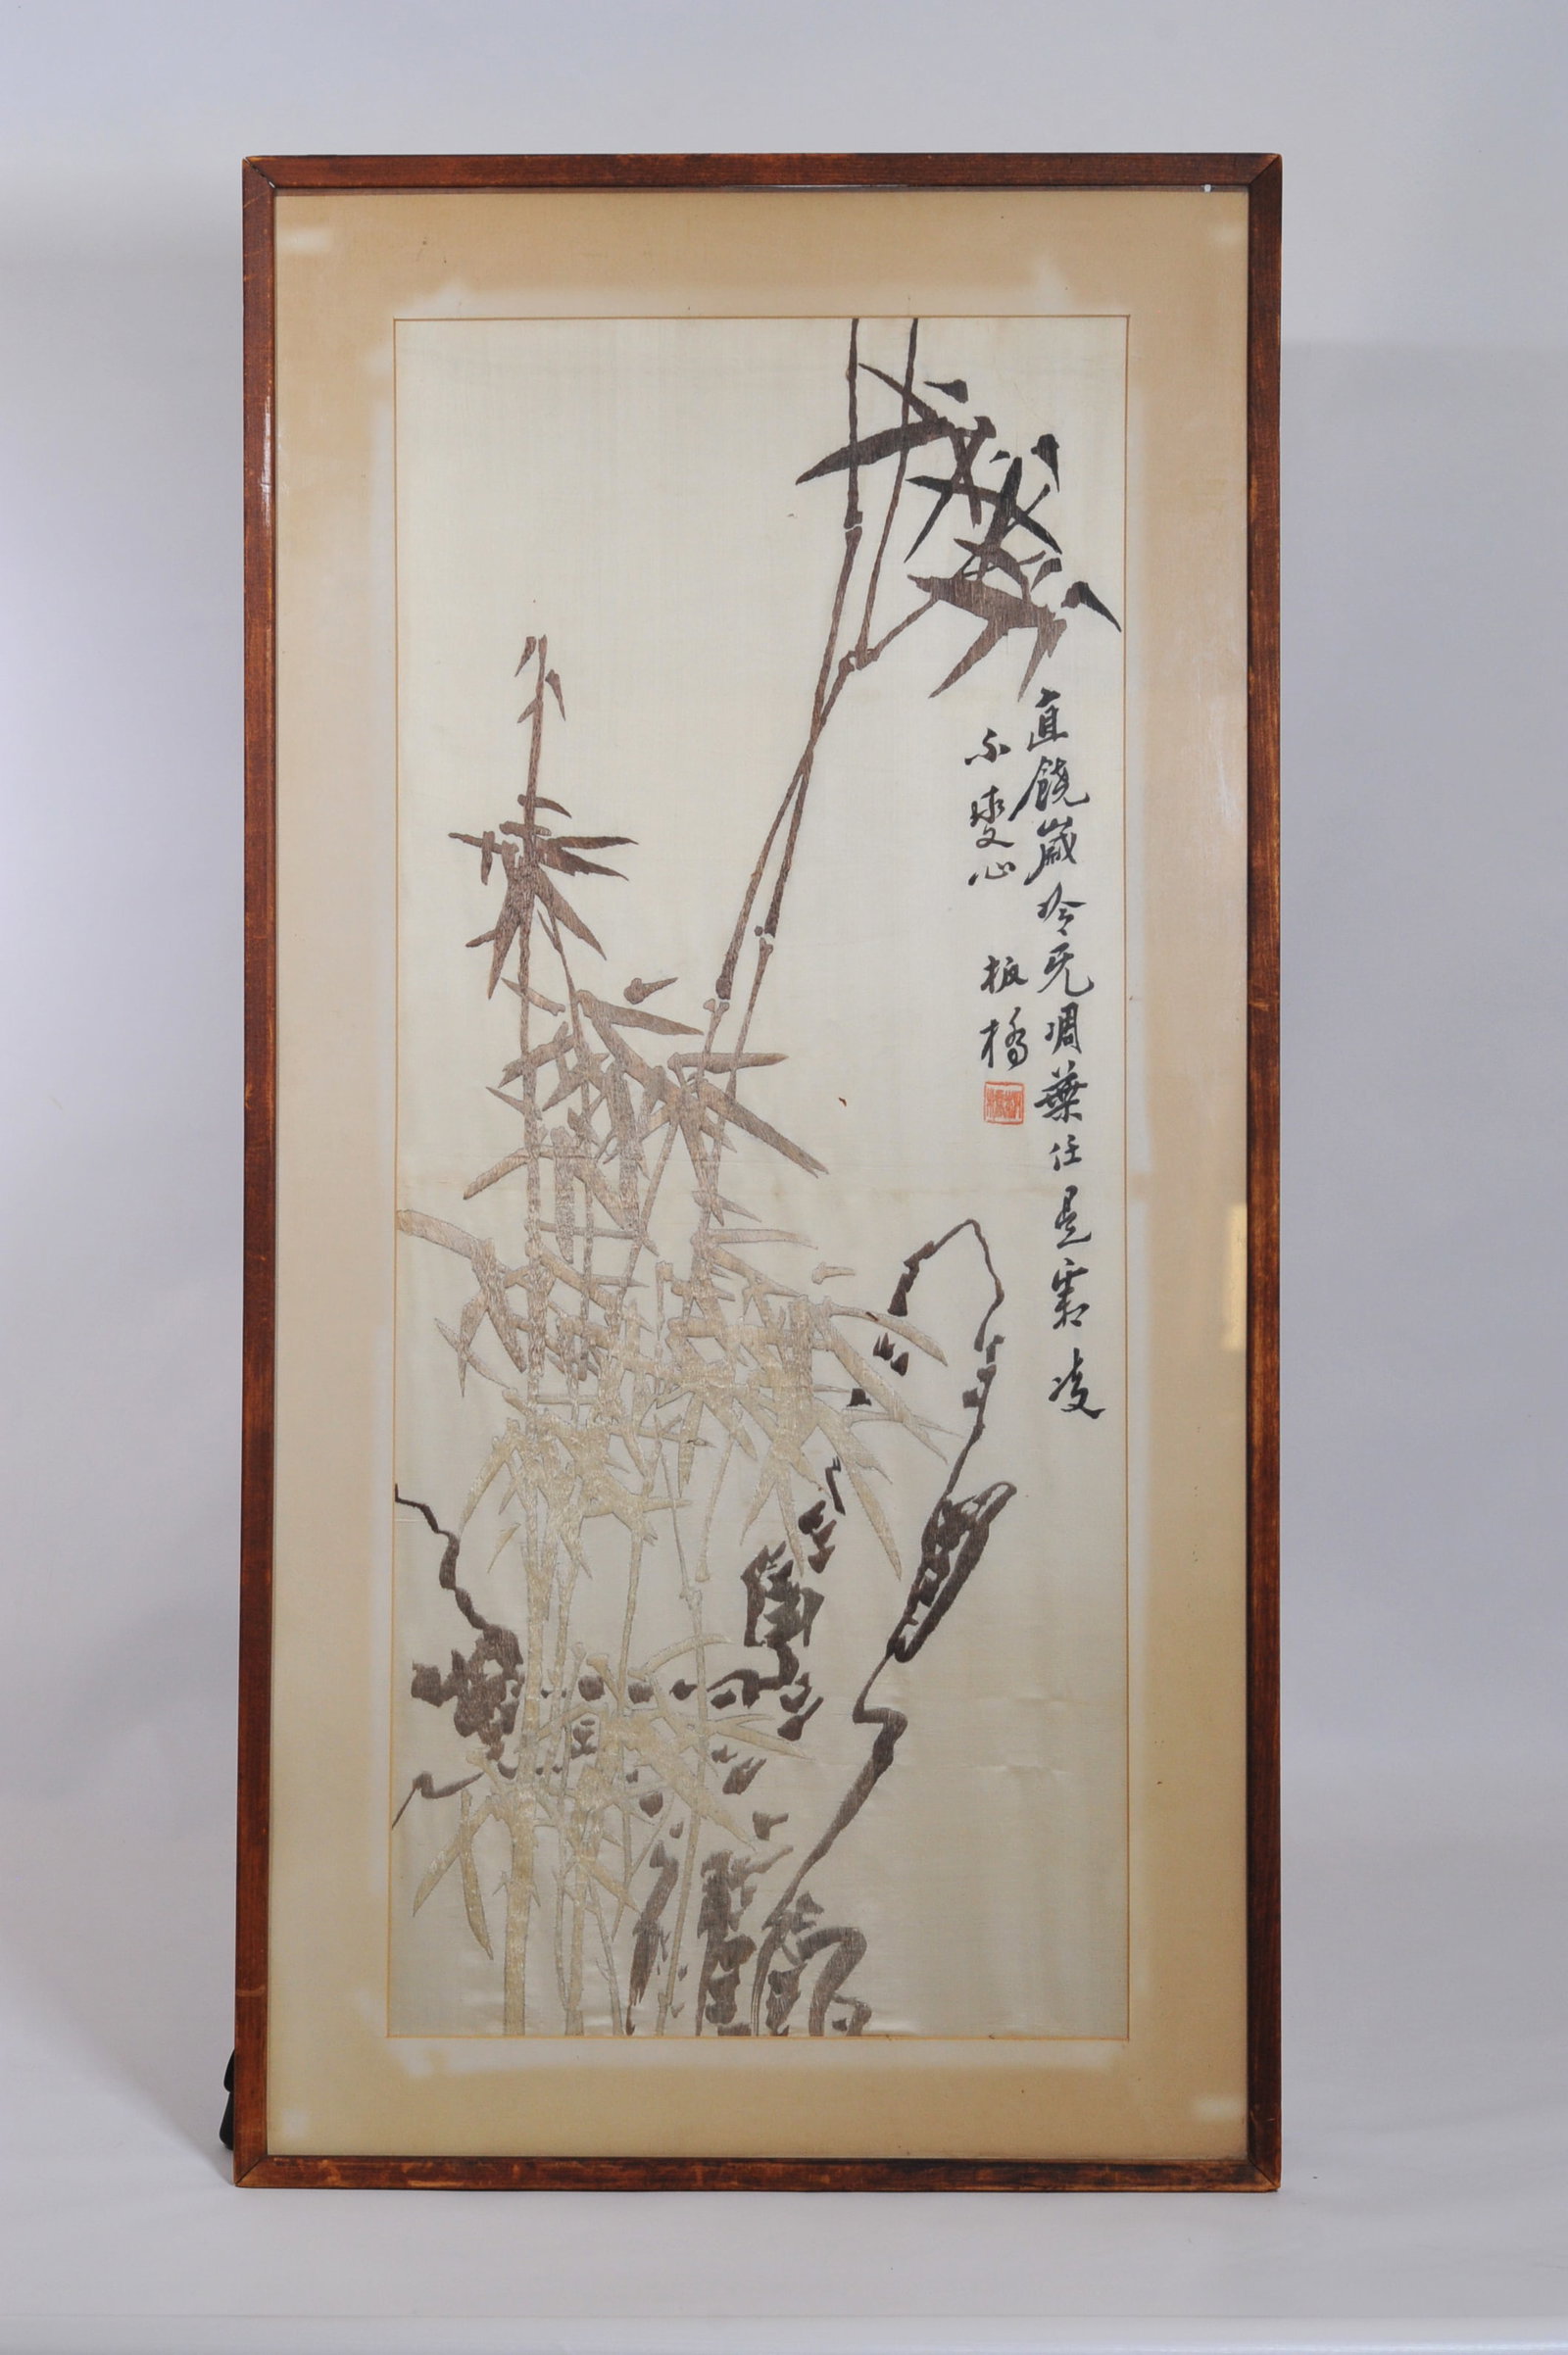 直饒歲冷无凋葉任是霜凌
不變心
板橋